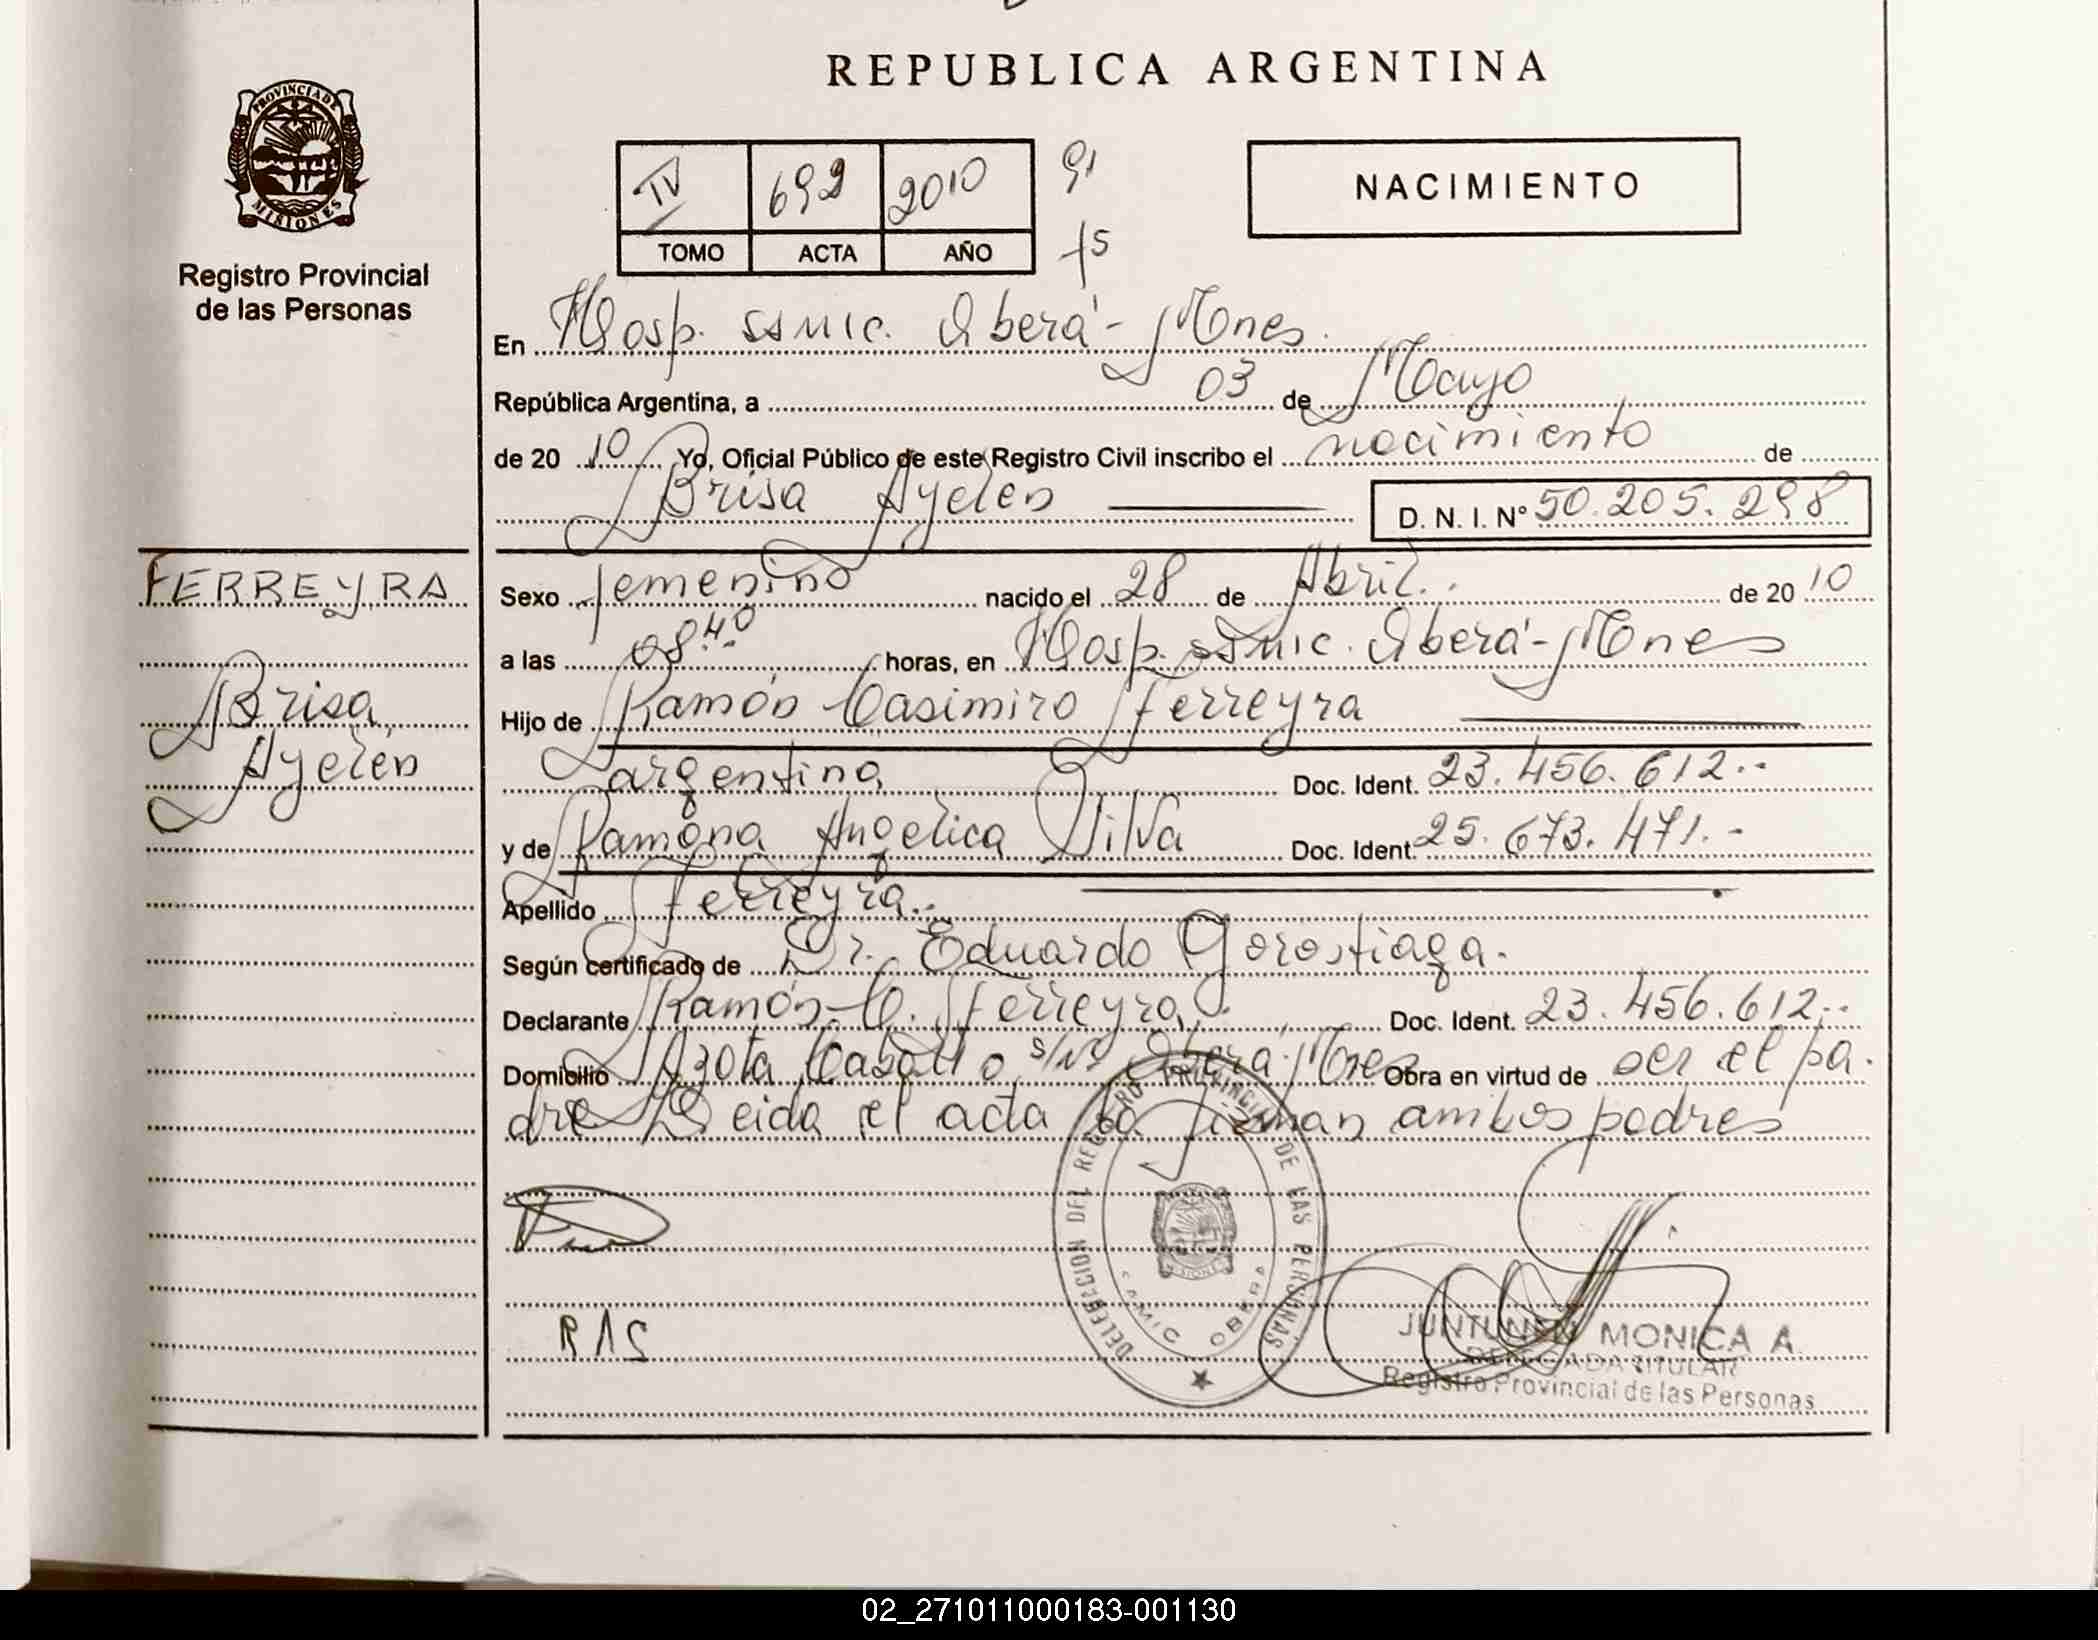 REPUBLICA ARGENTINA
PROVINCIA DE
MISIONES
Registro Provincial
de las Personas
IV 692 2010 91
TOMO ACTA AÑO 75
NACIMIENTO
En Hosp. SAMIC. Oberá - Mnes.
República Argentina, a 03 de Mayo
de 20 10 Yo, Oficial Público de este Registro Civil inscribo el nacimiento de
Brisa Ayelen D. N. I. Nº 50.205.298
FERREYRA
Brisa
Ayelen
Sexo femenino nacido el 28 de Abril. de 20 10
a las 08.40 horas, en Hosp. SAMIC. Oberá - Mnes
Hijo de Ramón Casimiro Ferreyra
argentino Doc. Ident. 23.456.612.-
y de Ramona Angelica Silva Doc. Ident. 25.673.471.-
Apellido Ferreyra.
Según certificado de Dr. Eduardo Gorostiaga.
Declarante Ramón C. Ferreyra. Doc. Ident. 23.456.612.-
Domicilio Azota Caballo s/Nº Oberá Mnes Obra en virtud de ser el pa-
dre Leida el acta la firman ambos padres
DELEGACION DEL REGISTRO PROVINCIAL DE LAS PERSONAS
SAMIC OBERA
MISIONES
RAS
JUNTUNEN MONICA A.
DELEGADA TITULAR
Registro Provincial de las Personas
02_271011000183-001130